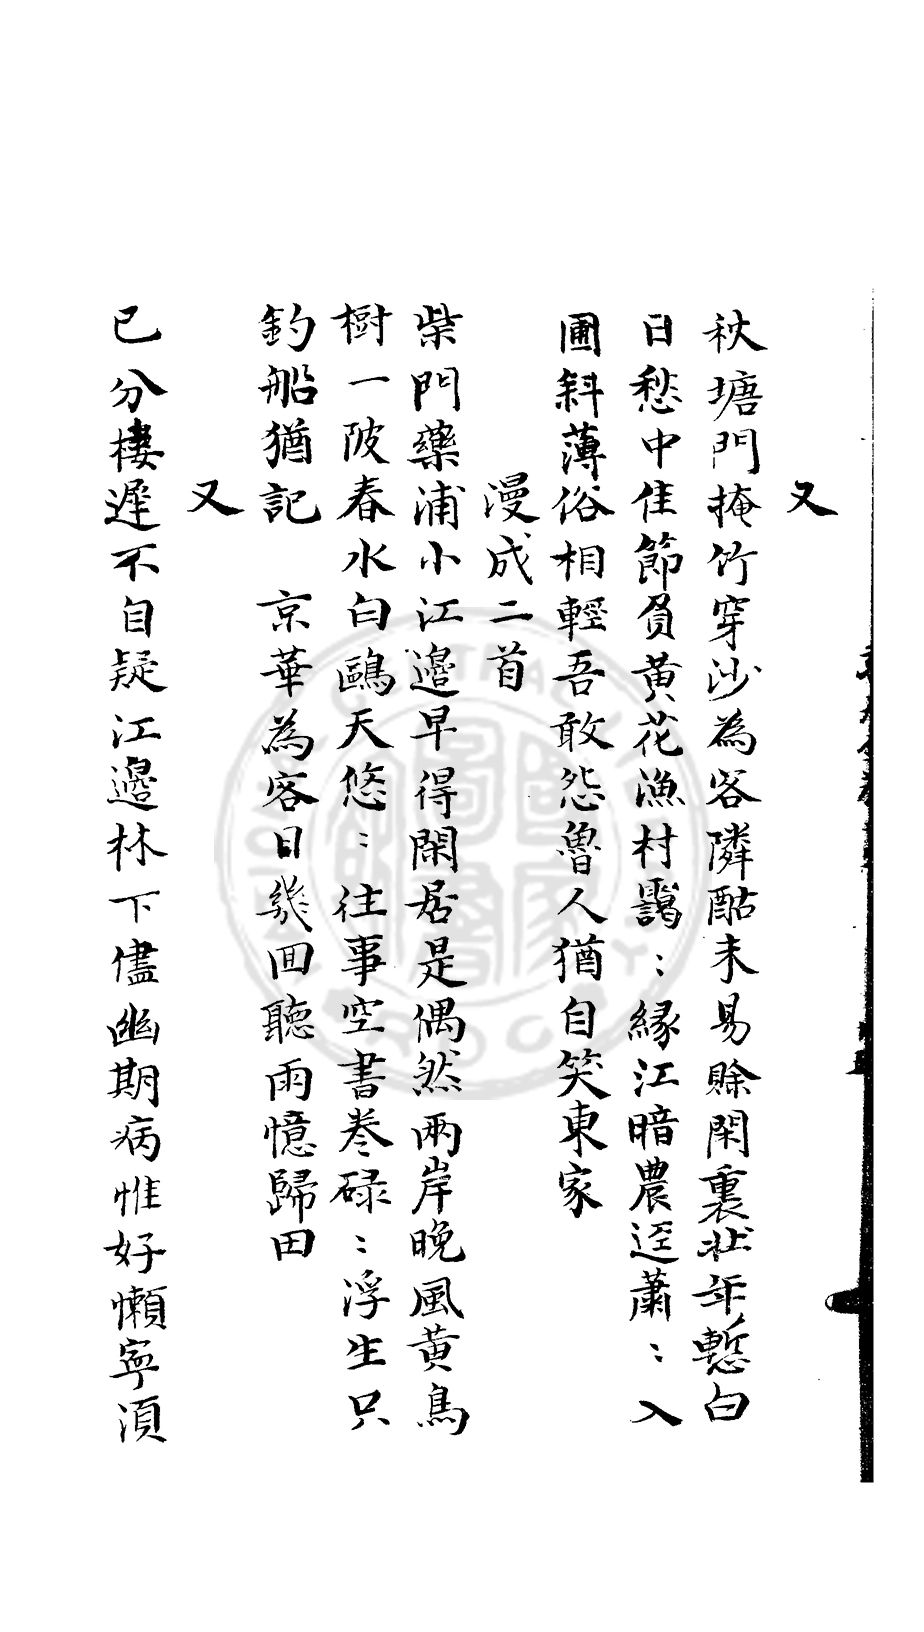 又
秋塘門掩竹穿沙為客隣酤未易賒閑裏壯年慙白
日愁中佳節負黃花漁村靄:緣江暗農逕蕭:入
圃斜薄俗相輕吾敢怨魯人猶自笑東家
漫成二首
柴門藥浦小江邊早得閑居是偶然兩岸晚風黃鳥
樹一陂春水白鷗天悠:往事空書卷碌:浮生只
釣船猶記 京華為客日幾回聽雨憶歸田
又
已分棲遲不自疑江邊林下儘幽期病惟好懶寧湏